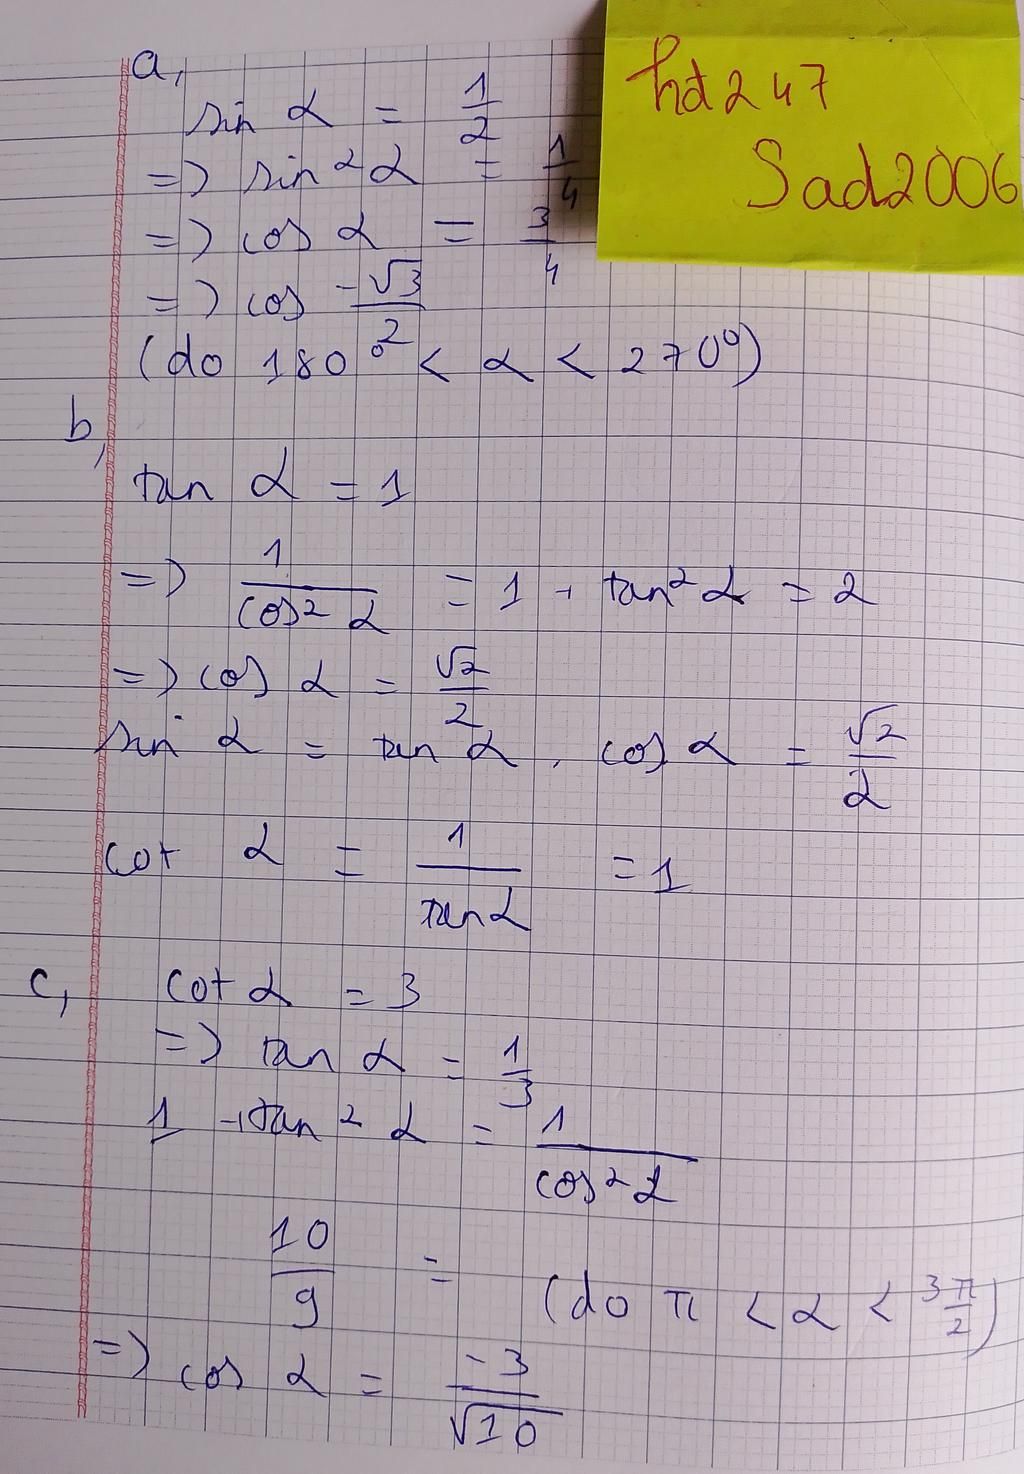 hd247
Sad2006
a,
sin α = 1/2
=> sin²α = 1/4
=> cos α = 3/4
=> cos -√3/2
(do 180° < α < 270°)
b,
tan α = 1
=> 1/cos² α = 1 + tan² α = 2
=> cos α = √2/2
sin α = tan α . cos α = √2/2
cot α = 1/tan α = 1
c, cot α = 3
=> tan α = 1/3
1 + tan² α = 1/cos² α
10/9 = (do π < α < 3π/2)
=> cos α = -3/√10